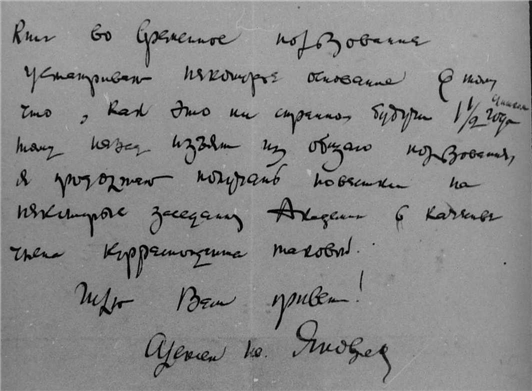 Книг во временное пользование
усматриваю некоторое основание в том,
что, как это ни странно, будучи 1 1/2 года
тому назад изъят из общаго пользования,
я продолжаю получать повестки на
некоторые заседания Академии в качестве
члена корреспондента таковой.
Шлю Вам привет!
Яковлев